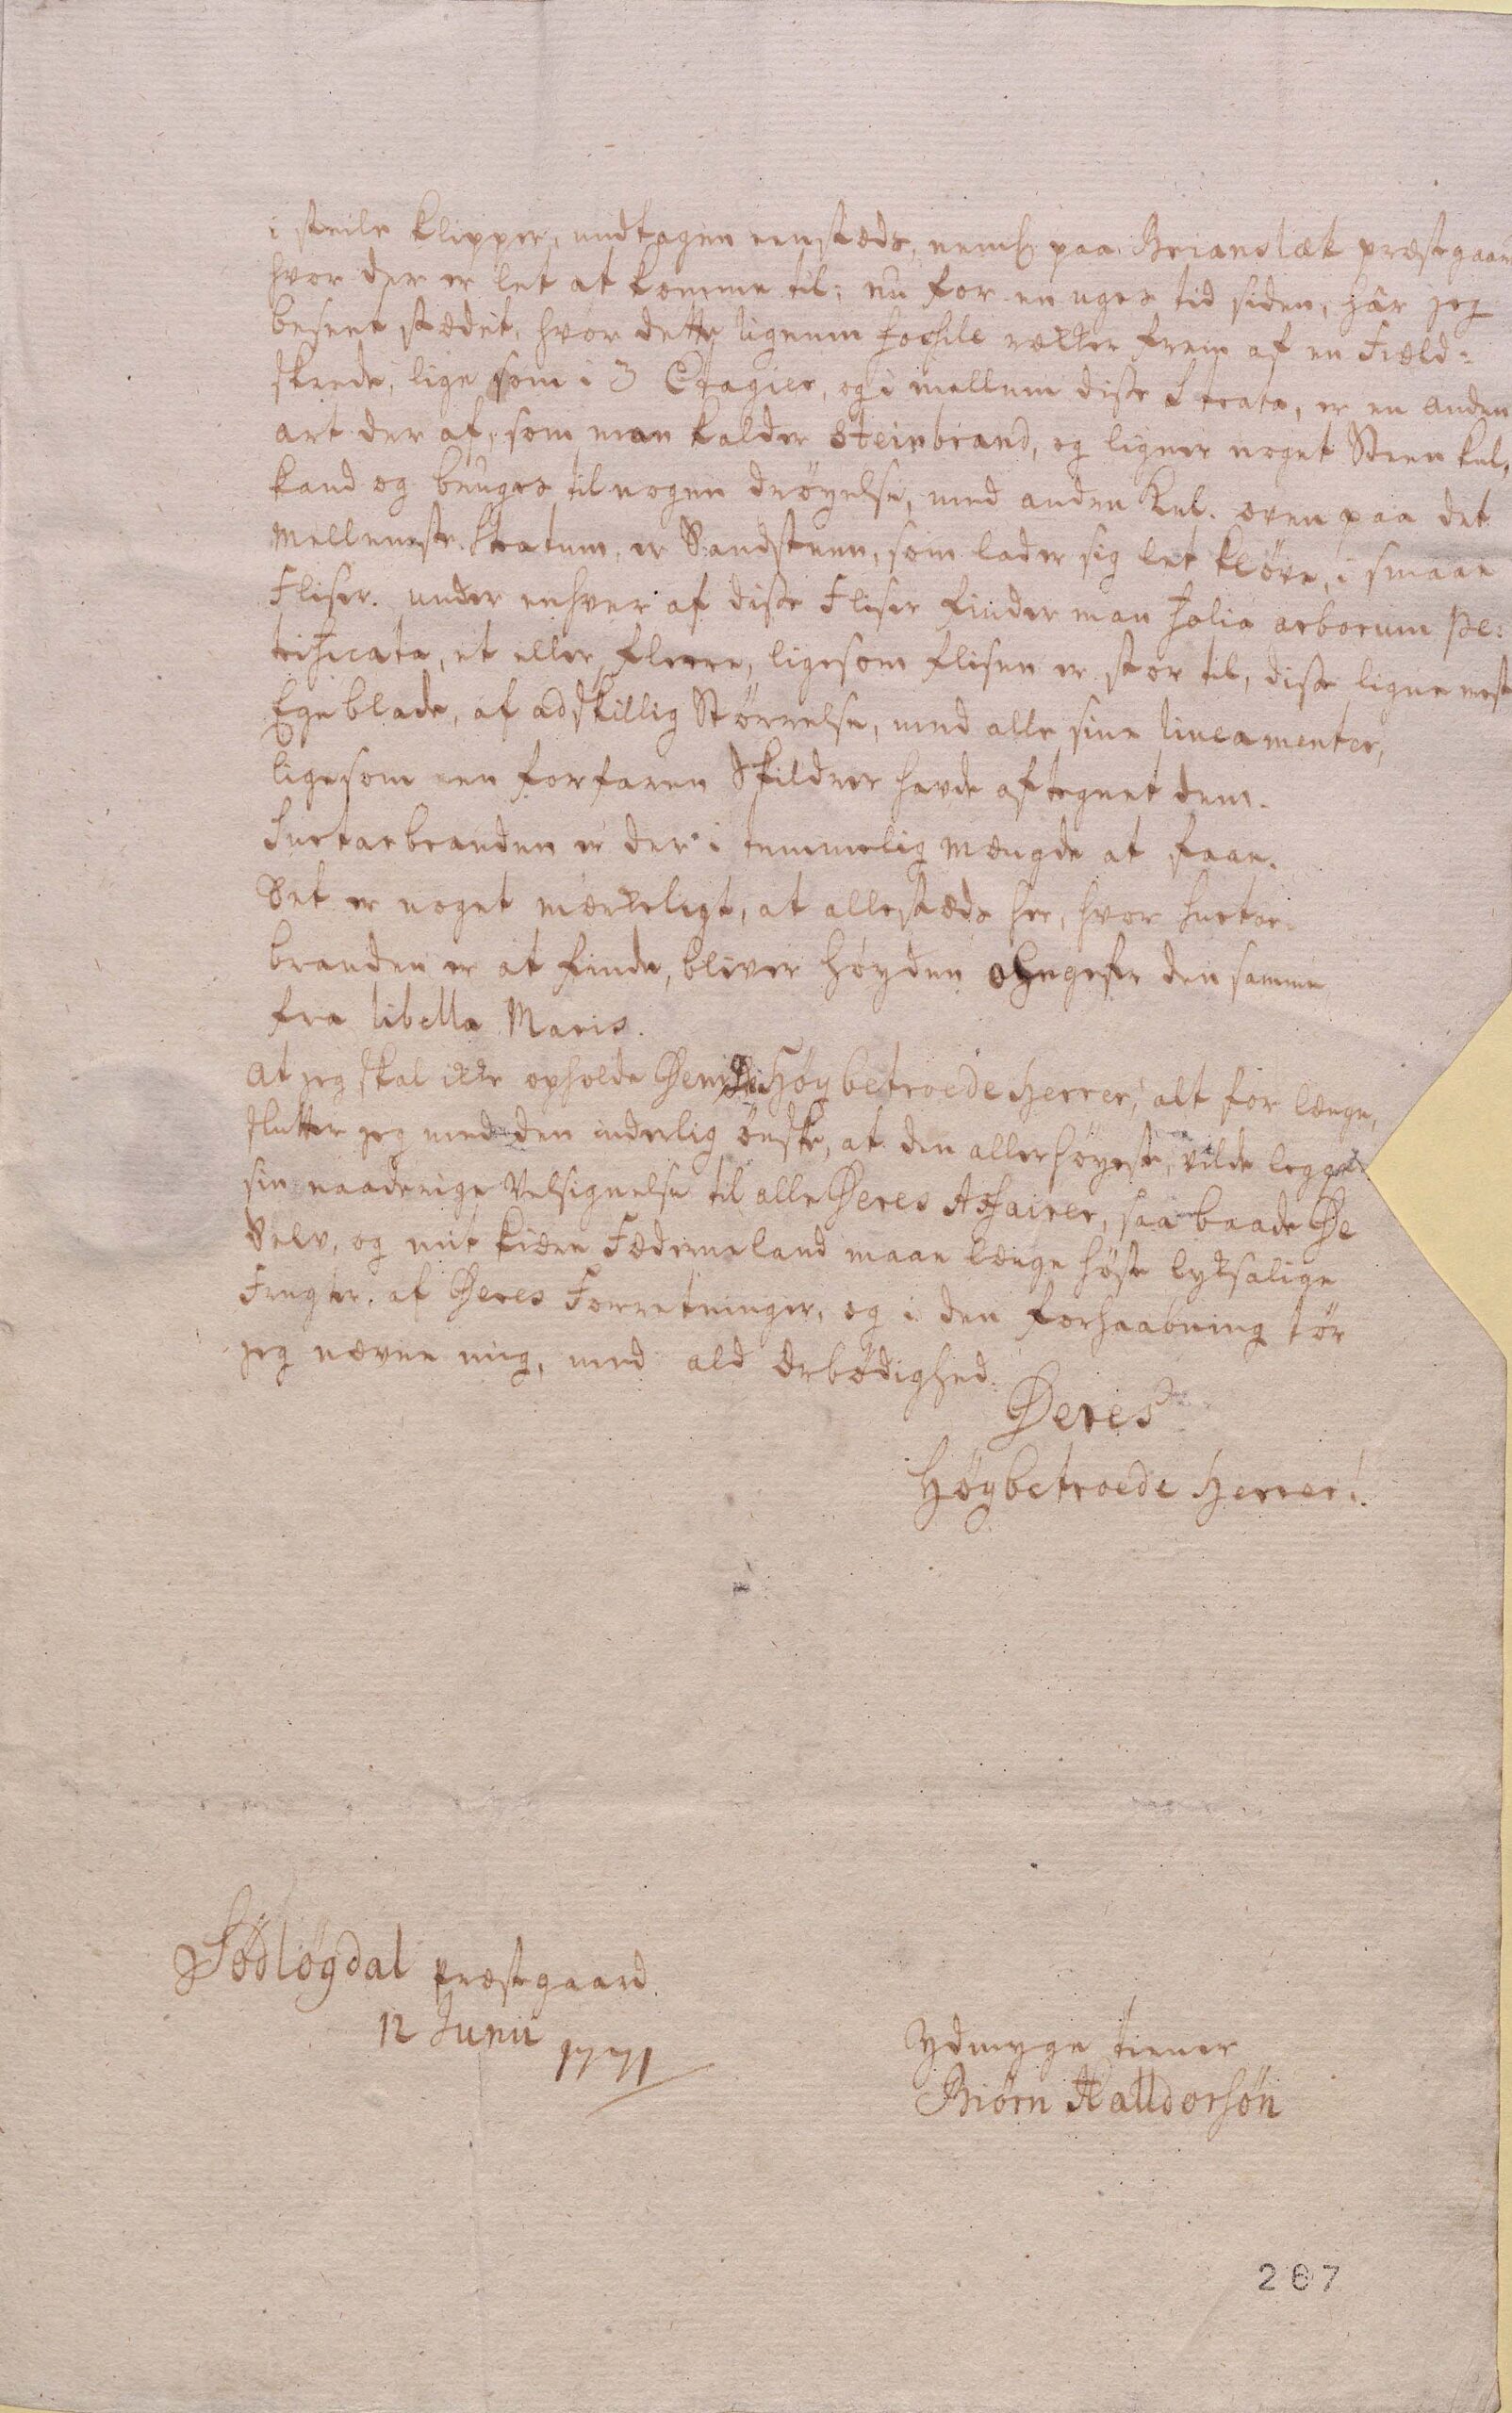 i steile klipper, undtagen eenstæds, neml paa Brianslæk præstegaar
hvor der er let at komme til: nu for en uges tid siden, har jeg
beseet stædet, hvor dette lignum fossile rækker frem af en Field-
skrede, lige som i 3 Etagier, og i mellum disse strata, er en anden
art der af, som man kalder Steinbrand, og ligner noget Steen kul,
kand og bruges til nogen drøyelse, med anden kul. oven paa det
mellemste stratum, er Sandsteen, som lader sig let kløve, i smaae
Fliser. under enhver af disse Fliser finder man folia arborum pe-
trificata, et eller fleere, ligesom flisen er stor til, disse ligne mest
Ege blade, af adskillig Størrelse, med alle sine lineamenter,
ligesom een forfaren Skildrer havde aftegnet dem.
Surtarbranden er der i temmelig mængde at faae.
Det er noget mærkeligt, at allestæds her, hvor surtar-
branden er at finde, bliver høyden ohngefer den samme
fra libella Maris.
At jeg skal ikke opholde Dem Høybetroede Herrer! alt for længe,
slutter jeg med den inderlig ønske, at den allerhøyeste, vilde legge
sin naaderige Velsignelse til alle Deres Affairer, saa baade De
Selv, og mit kiære Fæderneland maae længe høste lyksalige
Frugter af Deres Forretninger, og i den forhaabning tør
jeg nævne mig, med ald Ærbødighed.
Deres
Høybetroede Herrer!
Södløgdal præstegaard.
12 Junii
1771
Ydmyge tiener
Biørn Halldorsøn
267